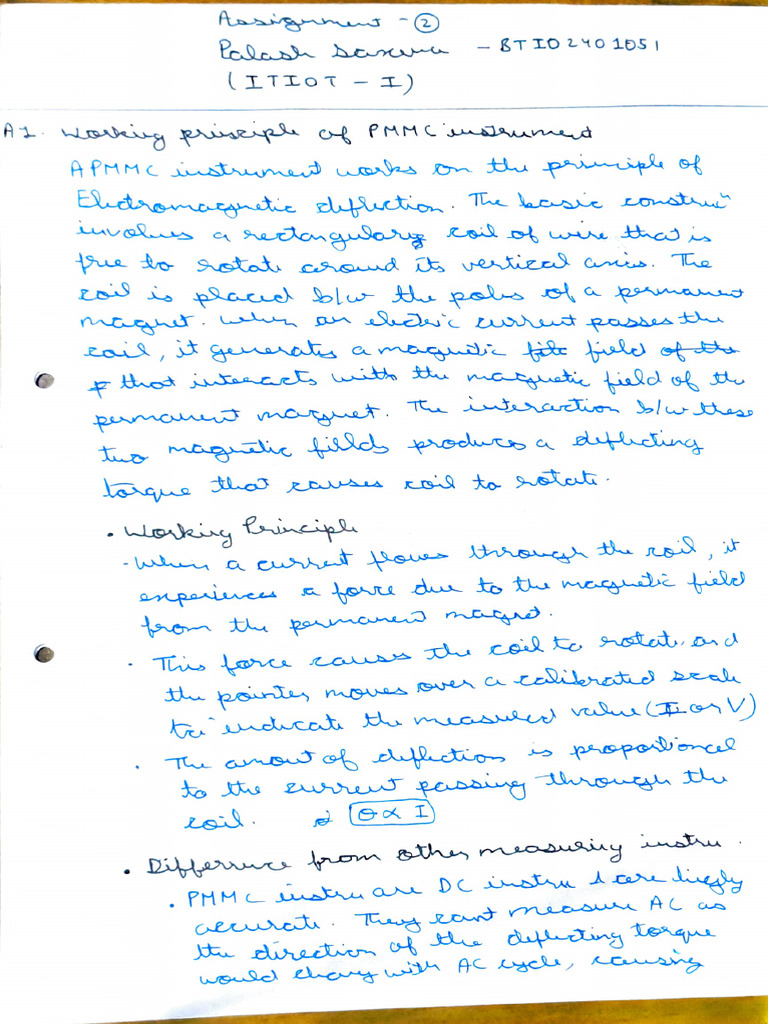 Assignment - ②
Palash Saxena - BTIO2401051
(ITIOT - I)
A1. Working principle of PMMC instrument
A PMMC instrument works on the principle of
Electromagnetic deflection. The basic construⁿ
involves a rectangular coil of wire that is
free to rotate around its vertical axis. The
coil is placed b/w the poles of a permanent
magnet. When an electric current passes the
coil, it generates a magnetic field of the
that interacts with the magnetic field of the
permanent magnet. The interaction b/w these
two magnetic fields produces a deflecting
torque that causes coil to rotate.
• Working Principle
- When a current flows through the coil, it
experiences a force due to the magnetic field
from the permanent magnet.
• This force causes the coil to rotate and
the pointer moves over a calibrated scale
to indicate the measured value (I or V)
• The amount of deflection is proportional
to the current passing through the
coil. θ ∝ I
• Difference from other measuring instru.
• PMMC instru are DC instru & are highly
accurate. They can't measure AC as
the direction of the deflecting torque
would change with AC cycle, causing